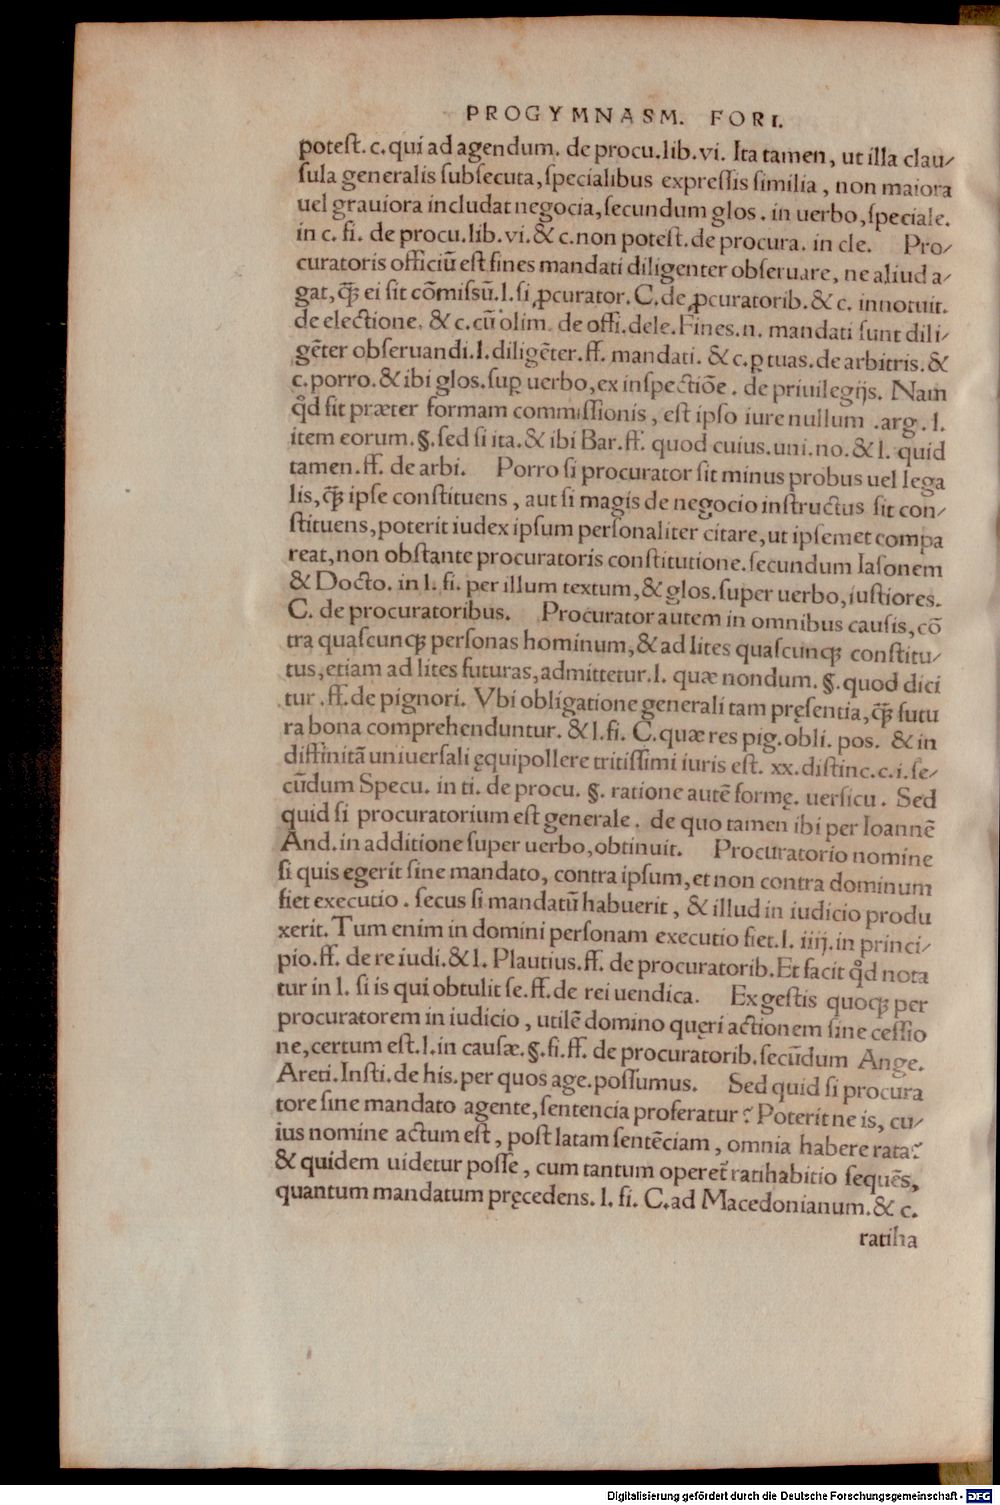 PROGYMNASM. FORI.
potest. c. qui ad agendum. de procu. lib. vi. Ita tamen, ut illa clau⸗
sula generalis subsecuta, specialibus expressis similia, non maiora
uel grauiora includat negocia, secundum glos. in uerbo, speciale.
in c. fi. de procu. lib. vi. & c. non potest. de procura. in cle. Pro⸗
curatoris officiū est fines mandati diligenter obseruare, ne aliud a⸗
gat, q̃ꝫ ei sit cōmissū. l. si ꝓcurator. C. de ꝓcuratorib. & c. innotuit.
de electione. & c. cū olim. de offi. dele. Fines. n. mandati sunt dili⸗
gēter obseruandi. l. diligēter. ff. mandati. & c. ꝑ tuas. de arbitris. &
c. porro. & ibi glos. suꝑ uerbo, ex inspectiōe. de priuilegijs. Nam
qd̓ fit præter formam commissionis, est ipso iure nullum. arg. l.
item eorum. §. sed si ita. & ibi Bar. ff. quod cuius. uni. no. & l. quid
tamen. ff. de arbi. Porro si procurator sit minus probus uel lega
lis, q̃ꝫ ipse constituens, aut si magis de negocio instructus sit con⸗
stituens, poterit iudex ipsum personaliter citare, ut ipsemet compa
reat, non obstante procuratoris constitutione. secundum Iasonem
& Docto. in l. fi. per illum textum, & glos. super uerbo, iustiores.
C. de procuratoribus. Procurator autem in omnibus causis, cō
tra quascunqꝫ personas hominum, & ad lites quascunqꝫ constitu⸗
tus, etiam ad lites futuras, admittetur. l. quæ nondum. §. quod dici
tur. ff. de pignori. Vbi obligatione generali tam pręsentia, q̃ꝫ futu
ra bona comprehenduntur. & l. fi. C. quæ res pig. obli. pos. & in
diffinitā uniuersali ęquipollere tritissimi iuris est. xx. distinc. c. i. se⸗
cūdum Specu. in ti. de procu. §. ratione autē formę. uersicu. Sed
quid si procuratorium est generale. de quo tamen ibi per Ioannē
And. in additione super uerbo, obtinuit. Procuratorio nomine
si quis egerit sine mandato, contra ipsum, et non contra dominum
fiet executio. secus si mandatū habuerit, & illud in iudicio produ
xerit. Tum enim in domini personam executio fiet. l. iiij. in princi⸗
pio. ff. de re iudi. & l. Plautius. ff. de procuratorib. Et facit qd̓ nota
tur in l. si is qui obtulit se. ff. de rei uendica. Ex gestis quoqꝫ per
procuratorem in iudicio, utilē domino quęri actionem sine cessio
ne, certum est. l. in causæ. §. fi. ff. de procuratorib. secūdum Ange.
Areti. Insti. de his. per quos age. possumus. Sed quid si procura
tore sine mandato agente, sentencia proferatur? Poterit ne is, cu⸗
ius nomine actum est, post latam sentēciam, omnia habere rata?
& quidem uidetur posse, cum tantum operet̃ ratihabitio sequēs,
quantum mandatum pręcedens. l. fi. C. ad Macedonianum. & c.
ratiha
Digitalisierung gefördert durch die Deutsche Forschungsgemeinschaft - DFG